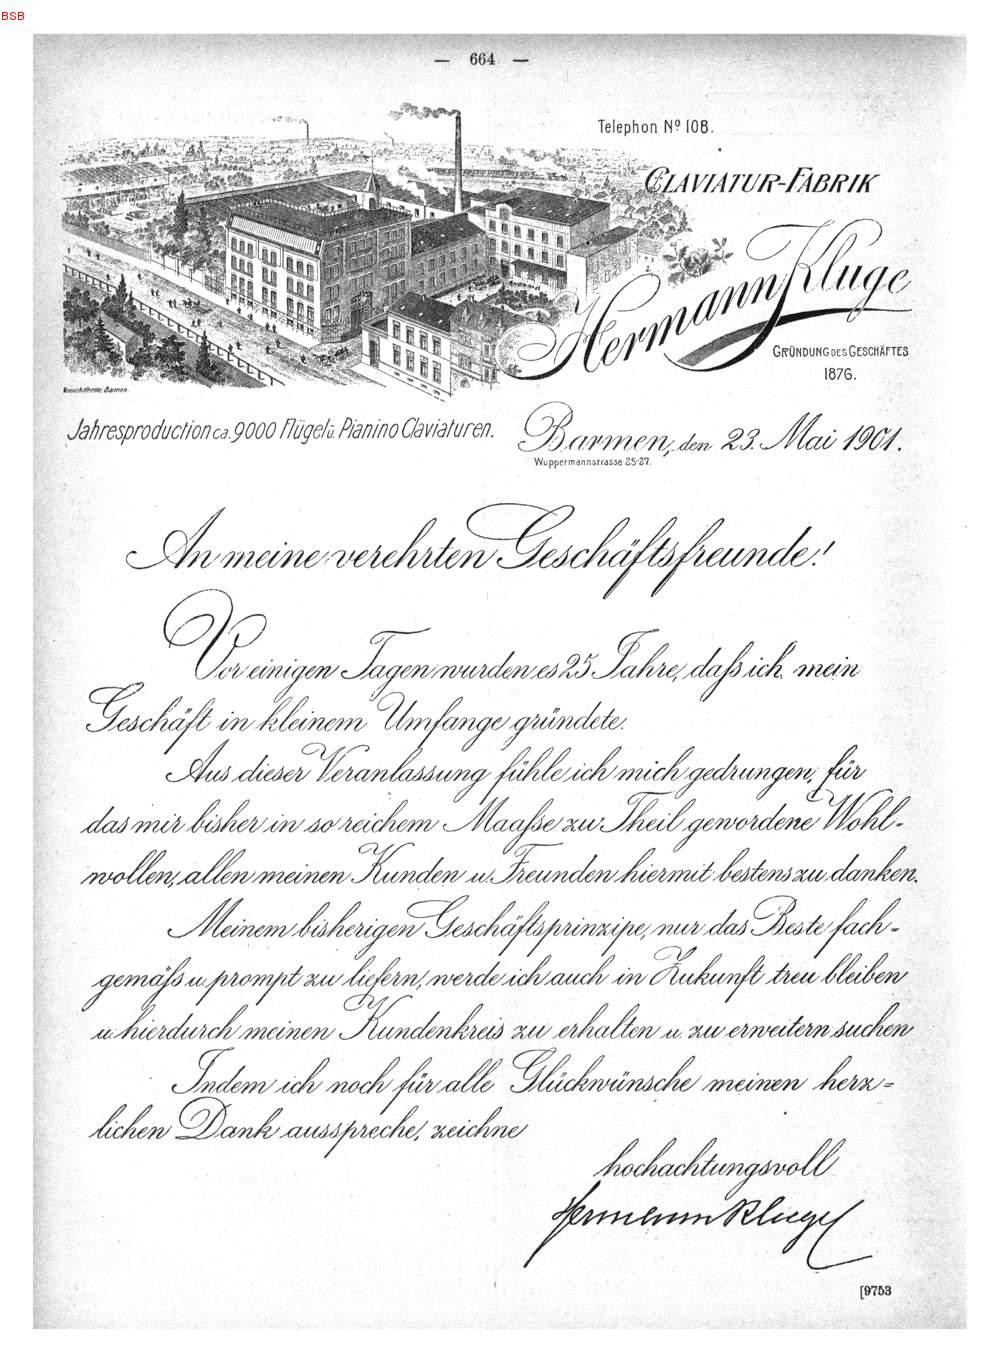 BSB
— 664 —
Telephon Nº 108.
CLAVIATUR-FABRIK
Hermann Kluge
GRÜNDUNG DES GESCHÄFTES
1876.
Jahresproduction ca. 9000 Flügel u. Pianino Claviaturen.
Barmen, den 23. Mai 1901.
Wuppermannstrasse 25-27.
An meine verehrten Geschäftsfreunde!
Vor einigen Tagen wurden es 25 Jahre, daſs ich mein
Geschäft in kleinem Umfange gründete.
Aus dieser Veranlassung fühle ich mich gedrungen, für
das mir bisher in so reichem Maaſse zu Theil gewordene Wohl-
wollen, allen meinen Kunden u. Freunden hiermit bestens zu danken.
Meinem bisherigen Geschäftsprinzipe, nur das Beste fach-
gemäſs u. prompt zu liefern, werde ich auch in Zukunft treu bleiben
u. hierdurch meinen Kundenkreis zu erhalten u. zu erweitern suchen
Indem ich noch für alle Glückwünsche meinen herz-
lichen Dank ausspreche, zeichne
hochachtungsvoll
Hermann Kluge
[9753